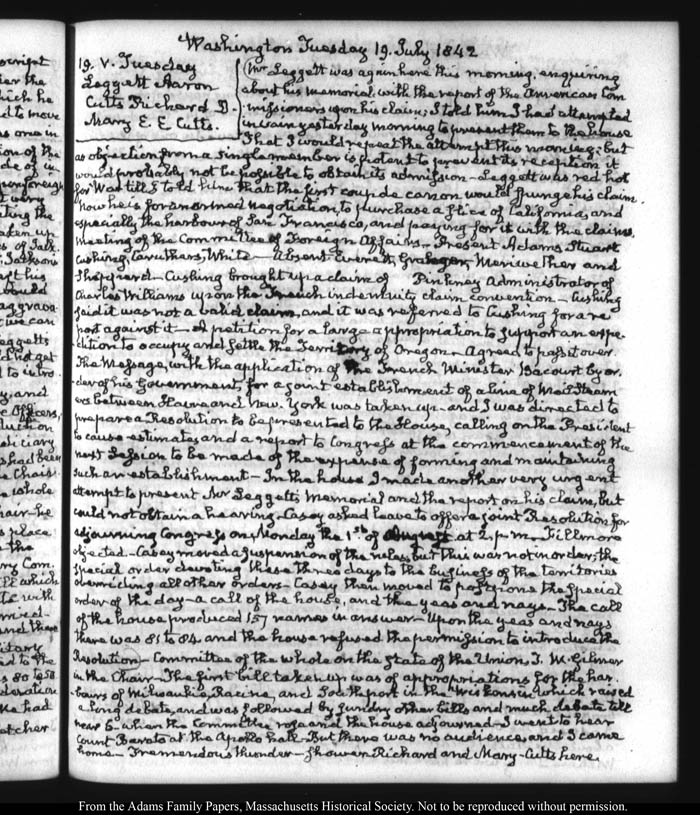 Washington Tuesday 19. July 1842
19. V. Tuesday
Leggett Aaron
Cutts Richard D.
Mary E. E. Cutts.
Mr Leggett was again here this morning, enquiring
about his memorial with the report of the American Com
missioners upon his claim; I told him I had attempted
in vain yesterday morning to present them to the house
That I would repeat the attempt this morning; but
as objection from a single member is potent to prevent its reception it
would probably not be possible to obtain its admission – Leggett was red hot
for War till I told him that the first coup de canon would expunge his claim.
Now he is for an armed negotiation, to purchase a slice of California, and
especially the harbour of San Francisco, and paying for it with the claims.
Meeting of the Committee of Foreign Affairs – Present Adams Stuart
Cushing, Caruthers, White – Absent Everett, Granger, Meriwether and
Shepperd – Cushing brought up a claim of Pinkney Administrator of
Charles Williams upon the French indemnity claim convention – Cushing
said it was not a valid claim, and it was referred to Cushing for a re
port against it – A petition for a large appropriation to support an expe-
dition to occupy and settle the Territory of Oregon – Agreed to pass it over.
The Message, with the application of the French Minister Bacourt by or-
der of his Government, for a joint establishment of a line of Mail Steam
ers between Havre and New York was taken up – and I was directed to
prepare a Resolution to be presented to the House, calling on the President
to cause estimates, and a report to Congress at the commencement of the
next Session to be made of the expense of forming and maintaining
such an establishment – In the house I made another very urgent
attempt to present Mr Leggett's Memorial and the report on his claim, but
could not obtain a hearing – Casey asked leave to offer a joint Resolution for
adjourning Congress on Monday the 1st of August at 2. p. m – Fillmore
objected – Casey moved a suspension of the rules, but this was not in order; the
special order devoting these three days to the business of the territories
overriding all other orders – Casey then moved to postpone the special
order of the day – a call of the house, and the yeas and nays – The call
of the house produced 157 names in answer – Upon the yeas and nays
there was 81 to 84. and the house refused the permission to introduce the
Resolution – Committee of the whole on the state of the Union, T. W. Gilmer
in the Chair – The first bill taken up was of appropriations for the har.
bours of Milwaukie, Racine, and Southport in the Wiskonsin, which raised
a long debate, and was followed by sundry other bills and much debate till
near 6 – when the Committee rose and the house adjourned – I went to hear
Count Barato at the Apollo hall – But there was no audience, and I came
home – Tremendous thunder-shower. Richard and Mary Cutts here.
From the Adams Family Papers, Massachusetts Historical Society. Not to be reproduced without permission.